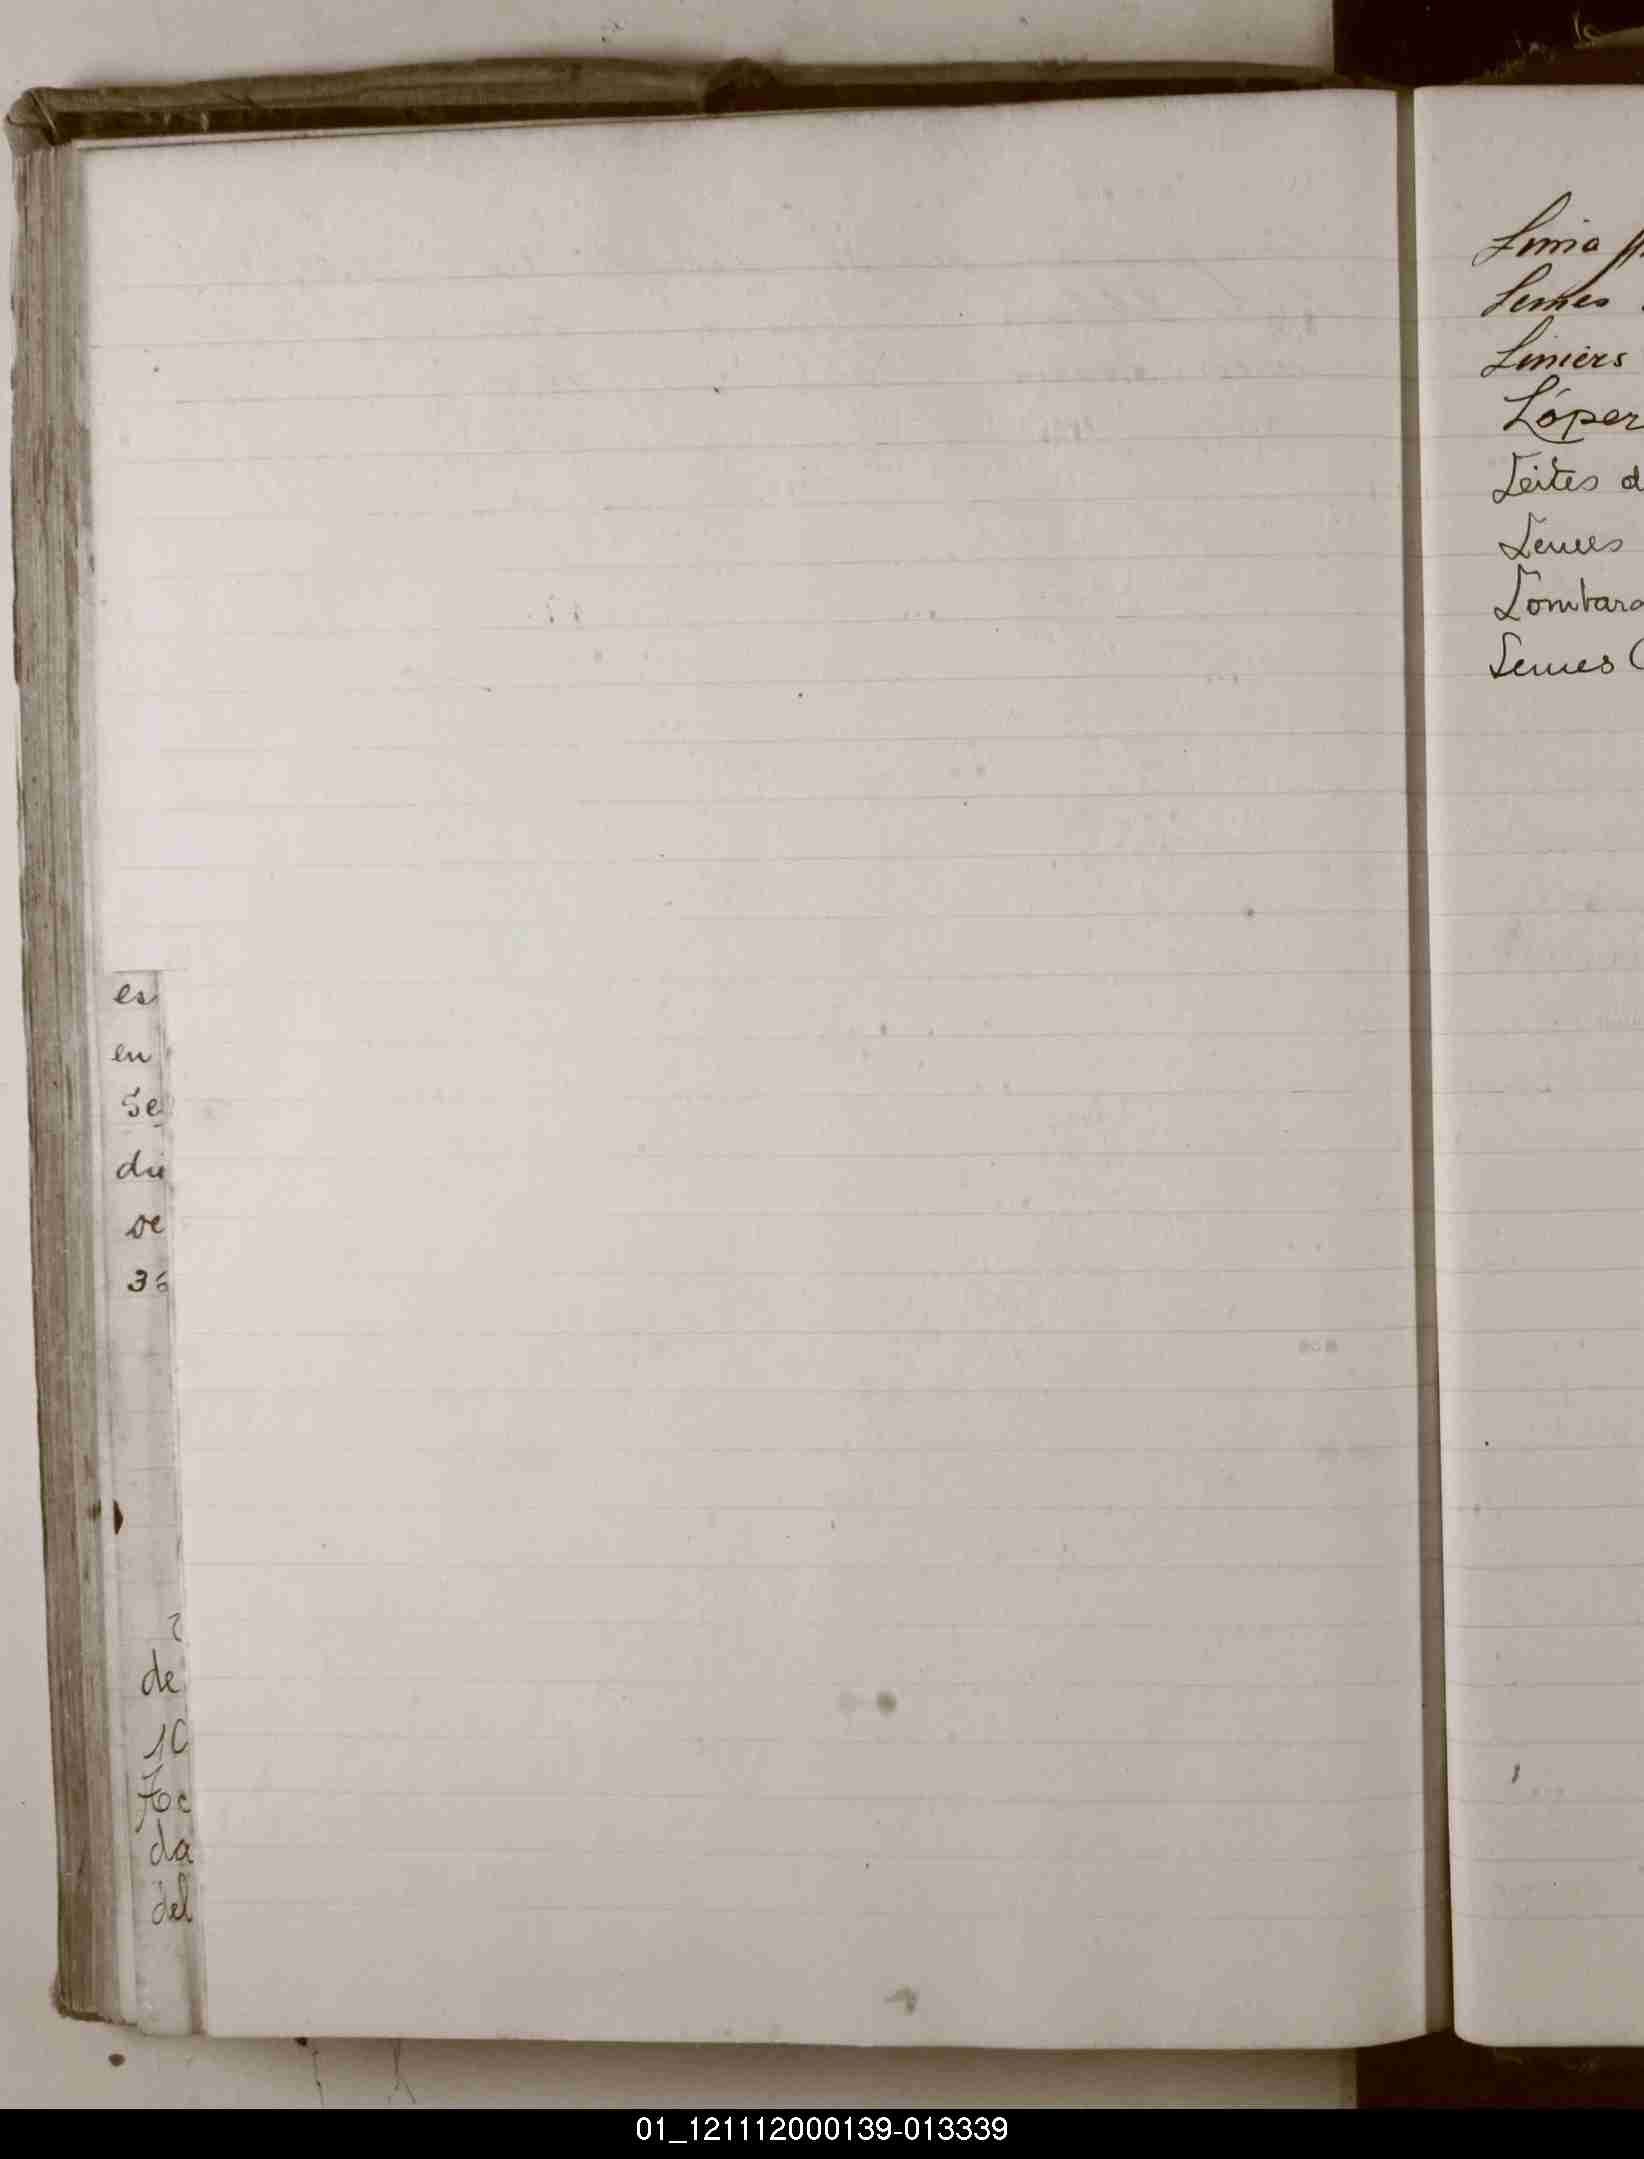 es
en
Se
de
10
da
del
Lemes
Liniers
López
Leites d
Lemes
Lombard
Lemes C
01_121112000139-013339